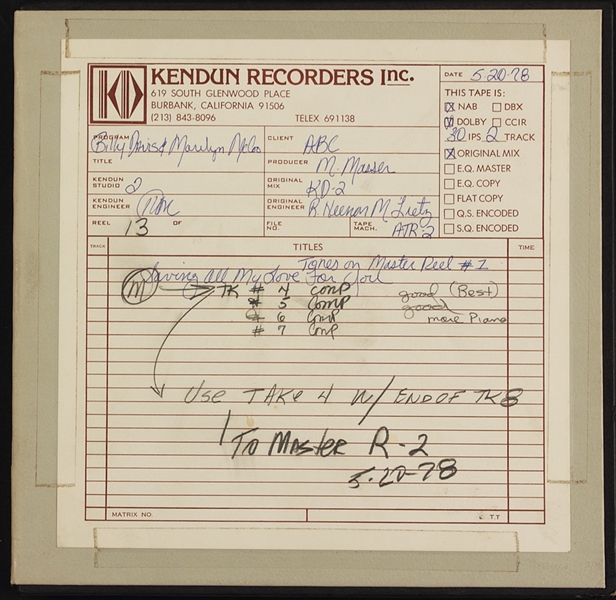 KENDUN RECORDERS Inc.
619 SOUTH GLENWOOD PLACE
BURBANK, CALIFORNIA 91506
(213) 843-8096 TELEX 691138
DATE 5-20-78
THIS TAPE IS:
NAB DBX
DOLBY CCIR
30 IPS 2 TRACK
ORIGINAL MIX
E.Q. MASTER
E.Q. COPY
FLAT COPY
Q.S. ENCODED
S.Q. ENCODED
PROGRAM Billy Davis & Marilyn McCoo
CLIENT ABC
TITLE
PRODUCER M. Masser
KENDUN STUDIO 2
ORIGINAL MIX KD-2
KENDUN ENGINEER
ORIGINAL ENGINEER
REEL 13 OF
FILE NO.
TAPE MACH. ATR-2
TRACK TITLES TIME
Tones on Master Reel #1
Saving All My Love For You
M TK # 4 Comp good (Best)
# 5 Comp good
# 6 Comp more Piano
# 7 Comp
USE TAKE 4 W/ END OF TK 8
TO MASTER R-2
5-20-78
MATRIX NO. T.T.